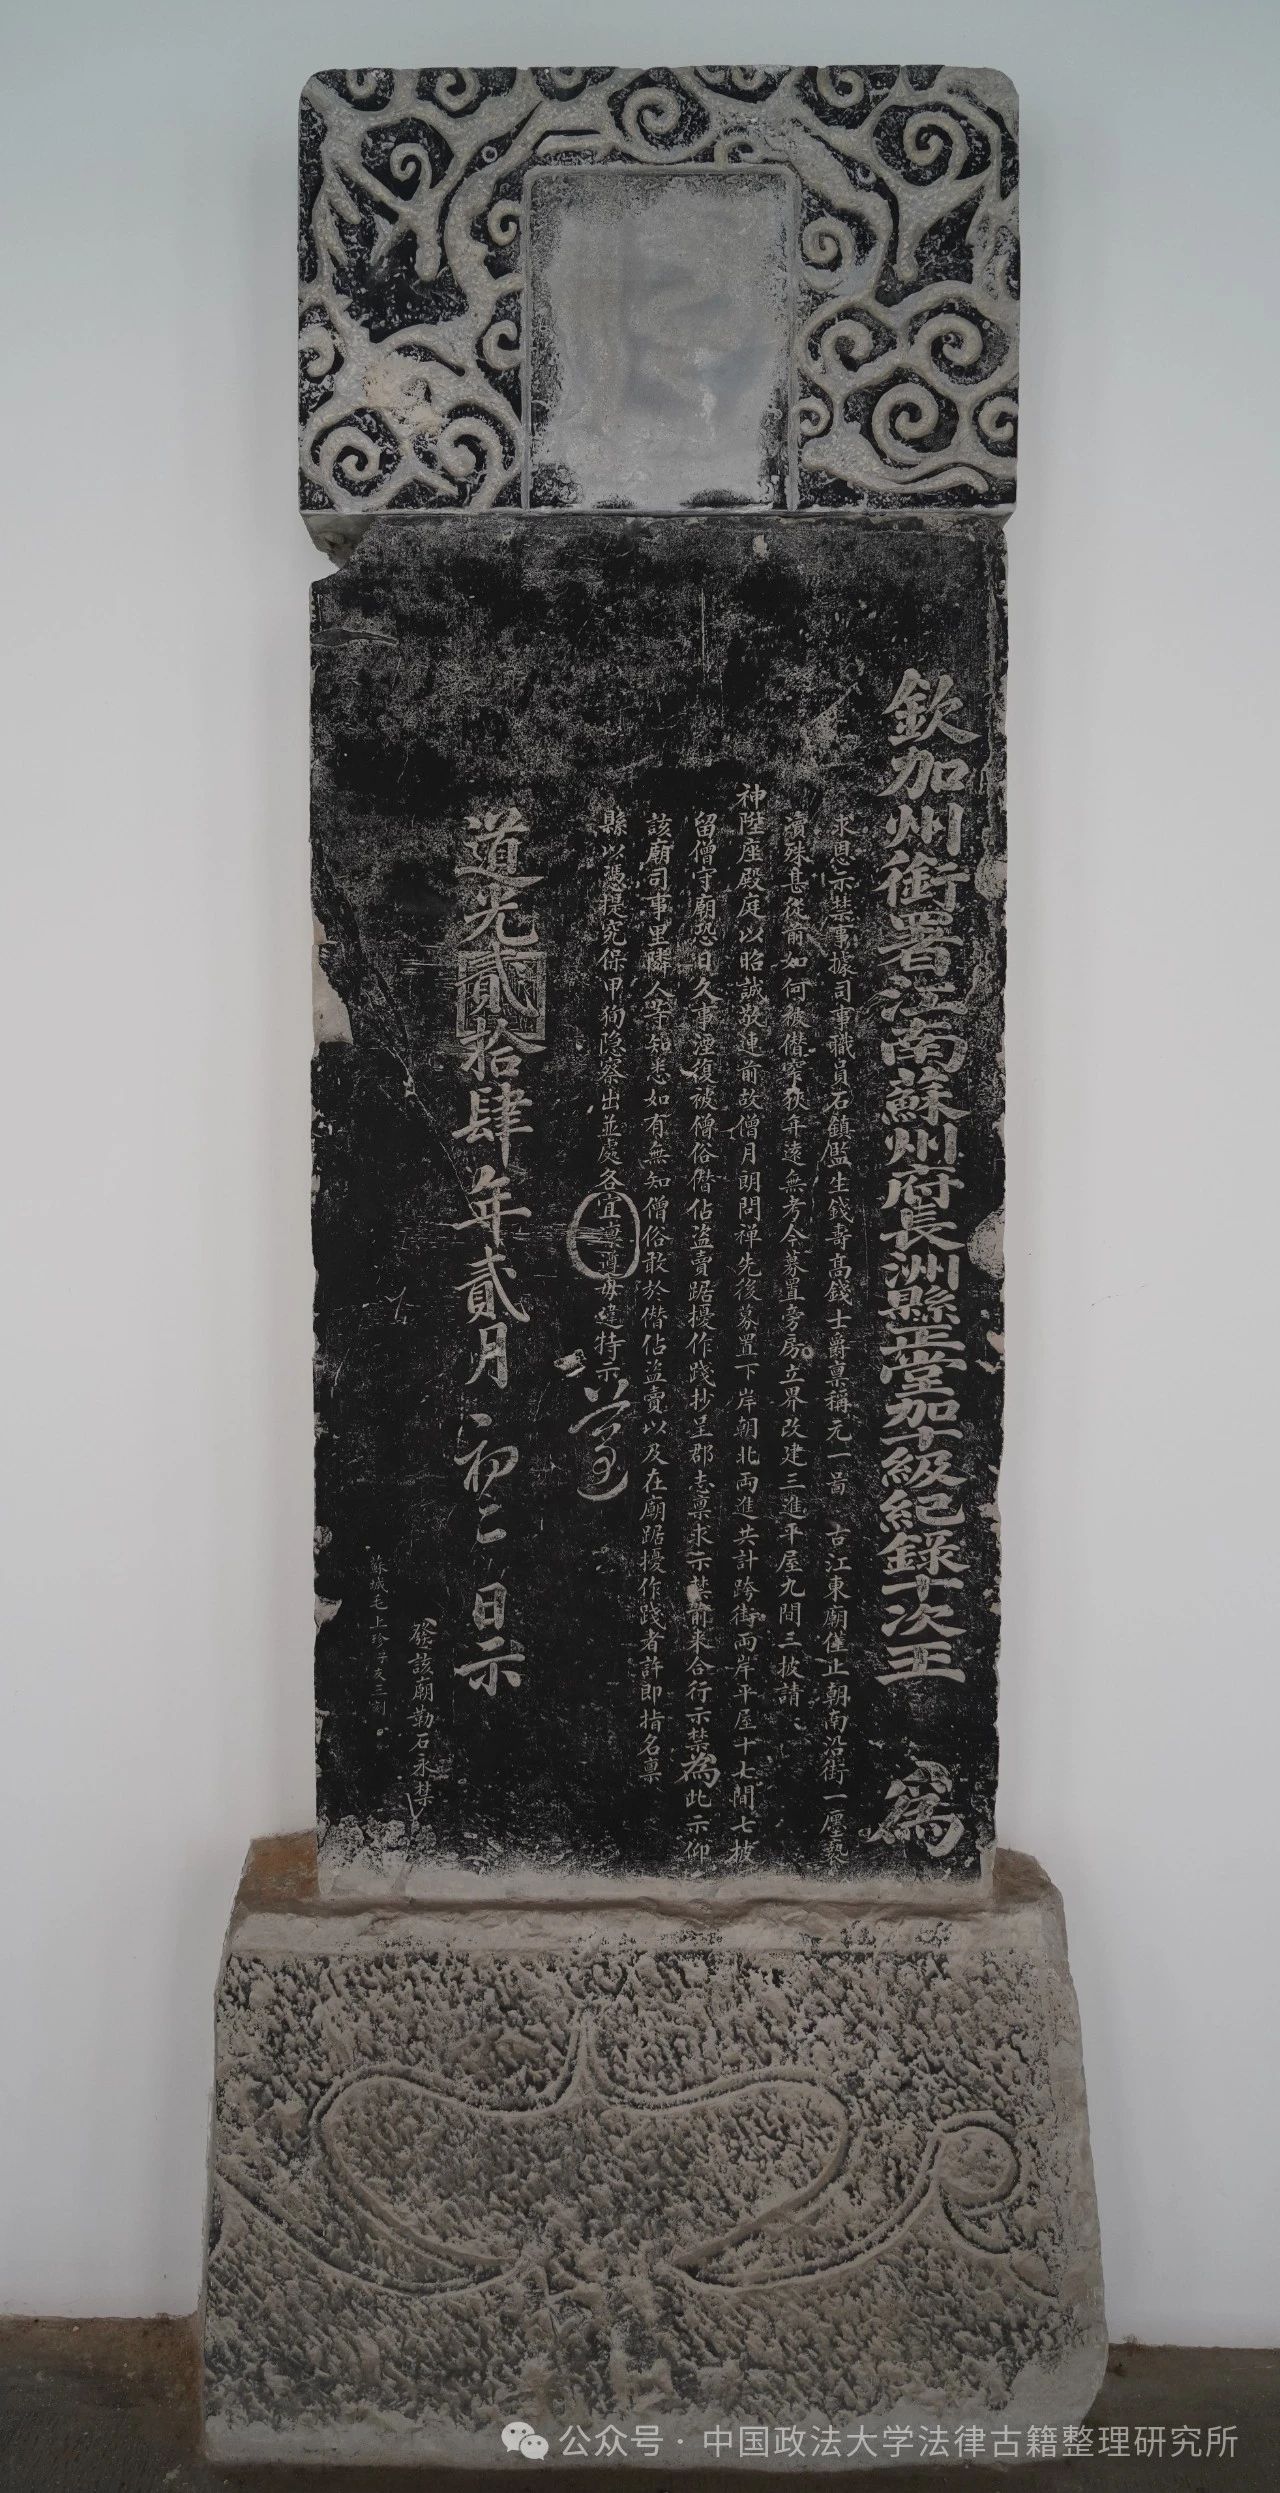 欽加州銜署江南蘇州府長洲縣正堂加十級紀錄十次王　為
求恩示禁事據司事職員石鎮監生錢壽高錢士爵稟稱元一啚　古江東廟僅止朝南沿街一廛褻
瀆殊甚從前如何被僣窄狹年遠無考今募置旁房立界改建三進平屋九間三披請
神陞座殿庭以昭誠敬連前故僧月朗問禪先後募置下岸朝北兩進共計跨街兩岸平屋十七間七披
留僧守廟恐日久事湮復被僧俗僣佔盜賣踞擾作踐抄呈郡志稟求示禁前來合行示禁為此示仰
該廟司事里隣人等知悉如有無知僧俗敢於僣佔盜賣以及在廟踞擾作踐者許即指名稟
縣以憑提究保甲狥隱察出並處各宜凛遵毋違特示
遵
道光貳拾肆年貳月　初二　日示
發該廟勒石永禁
蘇城毛上珍子友三刻
公众号·中国政法大学法律古籍整理研究所